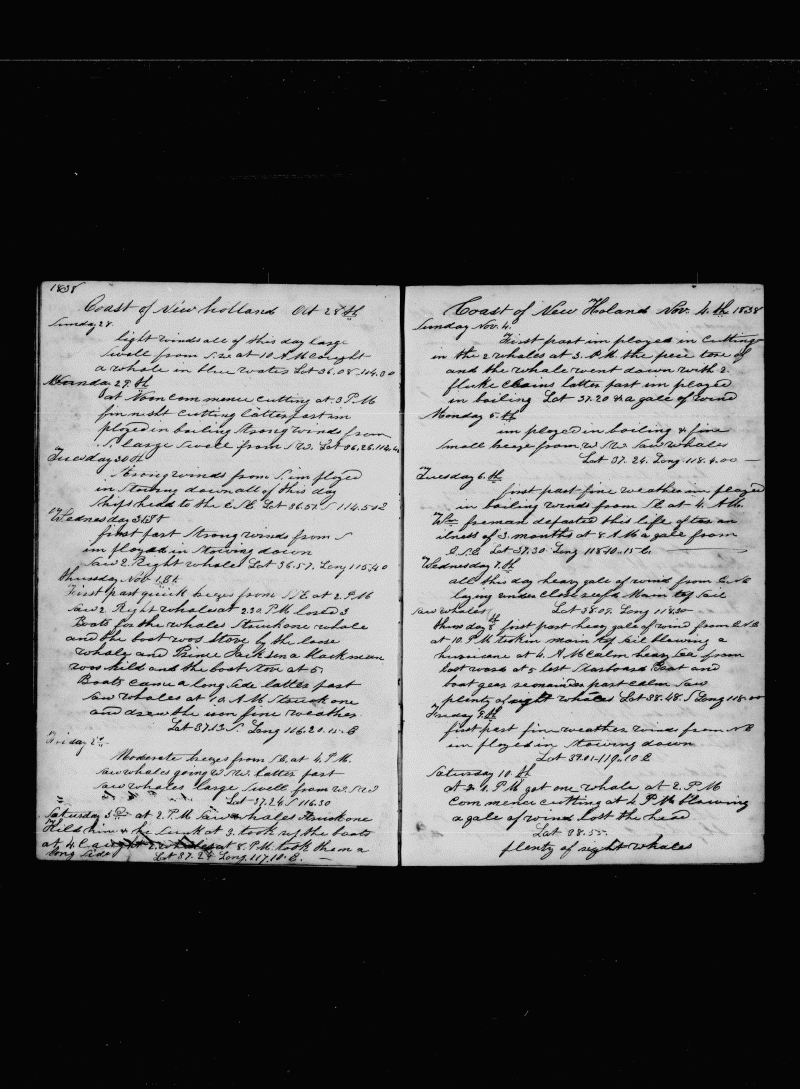 1838
Coast of New holland Oct 28th
Sunday 28
light winds all of this day large
Swell from at 10 A M Caught
a whale in blue water Lat 36.08 114.00
29th
at Noon commence Cutting at 3 P M
finnisht Cutting latter part im
ployed in boiling Strong winds from
S. large Swell from S W. Lat 36.26 114
Tuesday 30th
Strong winds from S. imployed
in Stowing down all of this day
Ships head to the Lat 36 S 114.50
Wednesday 31st
first part Strong winds from S
imployed in Stowing down
Saw 2 Right whales Lat 36.57. Long 115.40
thursday Nov 1st
First part quick brezes from at 2 P M
Saw 2 Right whales at 2.30 P M lowred 3
Boats for the whales Struck one whale
and the boat was Stove by the loose
whale and Prince Jackson a black man
was kild and the boat tore at 5
Boats came a long Side latter part
Saw whales at 10 A M Struck one
and drew the iron fine weather
Lat 37.13 S. Long 116.20.15 E
Friday 2
Moderate brezes from at 4. P.M.
Saw whales going W S W. latter part
Saw whales large Swell from W.S.W
Lat 37.24 S 116.30
Saturday 3 at 2. P.M Saw whales Struck one
Kild him & he Sunk at 3. took up the boats
at 4. Caught 2 whales at 8. P.M. took them a
long Side Lat 37.28 Long. 117.10. E.
Coast of New Holand Nov. 4.th 1838
Sunday Nov. 4.
First part imployed in Cutting
in the 2 whales at 3. P.M the peice tore of
and the whale went down with 2
fluke Chains latter part imployed
in boiling Lat 37.20 & a gale of wind
Monday 5.th
imployed in boiling & fine
Small breze from W S W Saw whales
Lat 37.24. Long 118.4.00
Tuesday 6.th
first part fine weather imployed
in boiling winds from at 4. A M.
Wm freman departed this life after an
ilness of 3. months at 8 A M a gale from
Lat 37.30 Long 118
Wednesday 7.th
all this day heavy gale of wind from
laying under Close reefd Main top Sail
Saw whales Lat 38.09. Long 118.30
thursday 8th first part heavy gale of wind from
at 10. P M taken main top Sail blowing a
hurricane at 4. A M Calm heavy Sea from
lost Starboard Boat and
boat gear remainder part Calm Saw
plenty of right whales Lat 38.48. S Long 118.00
Friday 9.th
first part fine weather winds from
imployed in Stowing down
Lat 39.01 119.10 E
Saturday 10.th
at 1. P.M got one whale at 2. P M
Commence cutting at 4 P M blowing
a gale of wind lost the head
Lat 38.55
plenty of right whales